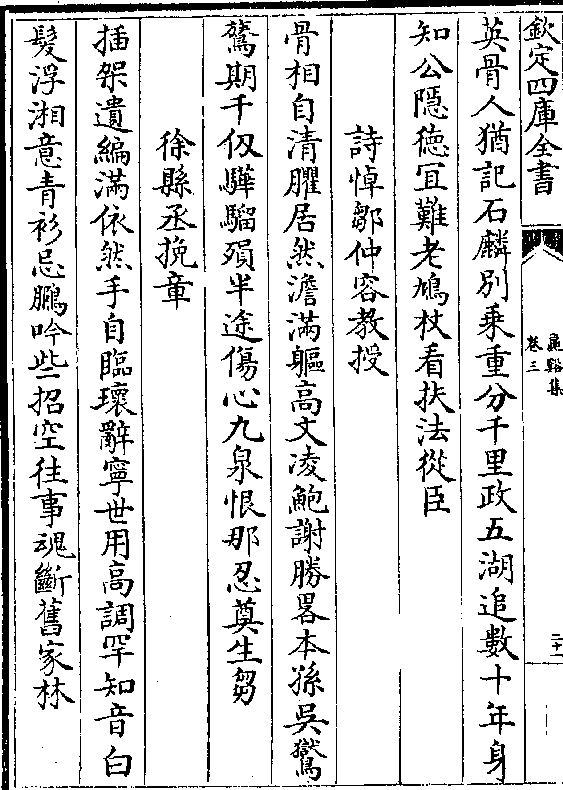 欽定四庫全書
龜谿集
卷三
二十一
英骨人猶記石麟別乘重分千里政五湖追數十年身
知公隱徳宜難老鳩杖看扶法從臣
詩悼鄒仲容教授
骨相自清臞居然澹滿軀高文凌鮑謝勝畧本孫吳鸑
鷟期千仭驊騮殞半途傷心九泉恨那忍奠生芻
徐縣丞挽章
插架遺編滿依然手自臨瓌辭寧世用高調罕知音白
髮浮湘意青衫忌鵩吟些招空往事魂斷舊家林